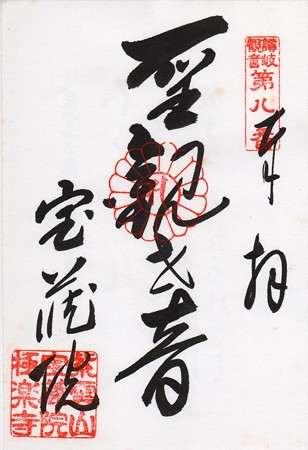 奉拝
讃岐
観音
第八番
聖観世音
宝蔵院
紫雲山
宝蔵院
極楽寺